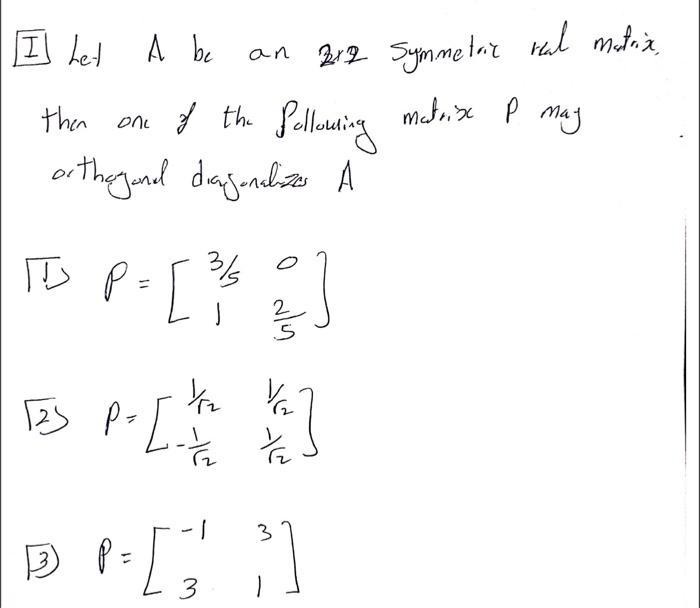 I Let A be an 2x2 Symmetric real matrix,
then one of the following matrix P may
orthogonal diagonalizes A
1) P = [ 3/5 0
1 2/5 ]
2) P = [ 1/√2 1/√2
-1/√2 1/√2 ]
3) P = [ -1 3
3 1 ]